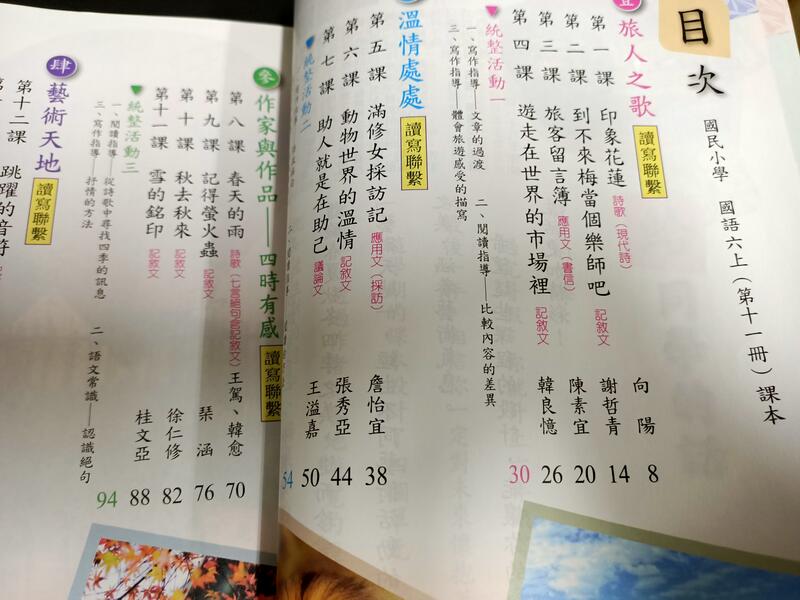 目次
國民小學 國語六上(第十一冊)課本
壹 旅人之歌 讀寫聯繫
第一課 印象花蓮 詩歌(現代詩) 向陽 8
第二課 到不來梅當個樂師吧 記敘文 謝哲青 14
第三課 旅客留言簿 應用文(書信) 陳素宜 20
第四課 遊走在世界的市場裡 記敘文 韓良憶 26
▼統整活動一 30
一、寫作指導——文章的過渡 二、閱讀指導——比較內容的差異
三、寫作指導——體會旅遊感受的描寫
溫情處處 讀寫聯繫
第五課 滿修女採訪記 應用文(採訪) 詹怡宜 38
第六課 動物世界的溫情 記敘文 張秀亞 44
第七課 助人就是在助己 議論文 王溢嘉 50
▼統整活動二 54
參 作家與作品——四時有感 讀寫聯繫
第八課 春天的雨 詩歌(七言絕句含記敘文) 王駕、韓愈 70
第九課 記得螢火蟲 記敘文 琹涵 76
第十課 秋去秋來 記敘文 徐仁修 82
第十一課 雪的銘印 記敘文 桂文亞 88
▼統整活動三 94
一、閱讀指導——從詩歌中尋找四季的訊息 二、語文常識——認識絕句
三、寫作指導——抒情的方法
肆 藝術天地 讀寫聯繫
第十二課 跳躍的音符